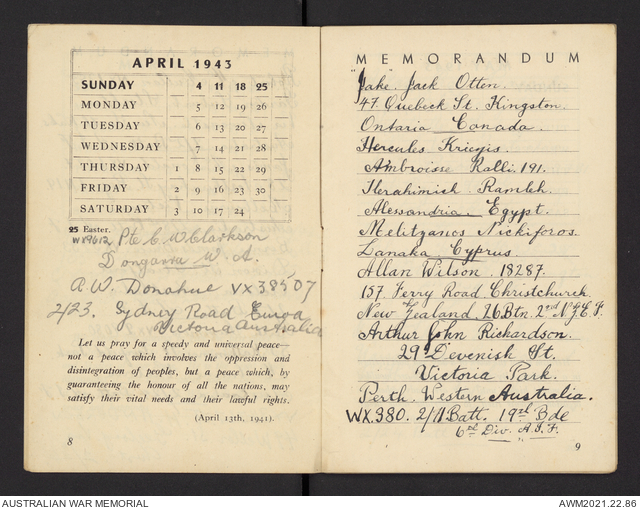 APRIL 1943
SUNDAY 4 11 18 25
MONDAY 5 12 19 26
TUESDAY 6 13 20 27
WEDNESDAY 7 14 21 28
THURSDAY 1 8 15 22 29
FRIDAY 2 9 16 23 30
SATURDAY 3 10 17 24
25 Easter.
Pte C. W. Clarkson
Dongarra W. A.
A.W. Donahue VX38507
2/23. Sydney Road Euroa
Victoria Australia
Let us pray for a speedy and universal peace—
not a peace which involves the oppression and
disintegration of peoples, but a peace which, by
guaranteeing the honour of all the nations, may
satisfy their vital needs and their lawful rights.
(April 13th, 1941).
8
MEMORANDUM
Jake Jack Otten.
47 Quebeck St. Kingston.
Ontaria Canada.
Hercules Kriegis.
Ambroisse Ralli. 191.
Ibrahimieh Ramleh.
Alessandria Egypt.
Melitzanos Nickiforos.
Lanaka Cyprus
Allan Wilson. 18287.
157 Ferry Road Christchurch.
New Zealand. 26 Btn. 2nd N.Z.E.F.
Arthur John Richardson.
29 Devenish St.
Victoria Park.
Perth. Western Australia.
WX.380. 2/11 Batt. 19th Bde
6th Div. A.I.F.
9
AUSTRALIAN WAR MEMORIAL
AWM2021.22.86